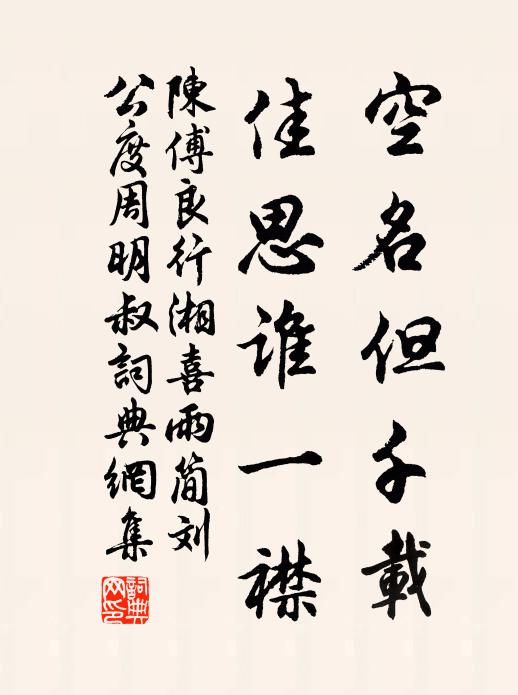 空名但千載
佳思誰一襟
陳傅良行湘喜雨簡刘
公度周明叔詞典網集
詞典网印